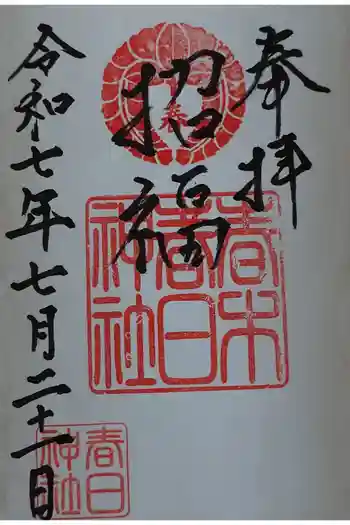 奉拝
招福
令和七年七月二十一日
春木
春日
神社
春日
神社